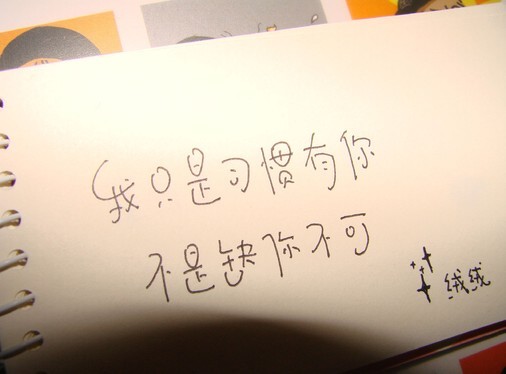 我只是习惯有你
不是缺你不可
绒绒